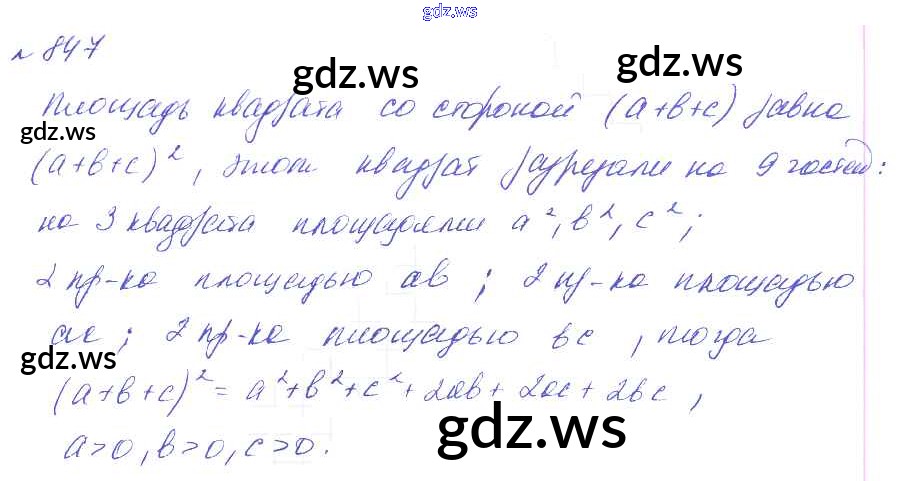 gdz.ws
№ 847
gdz.ws gdz.ws
Площадь квадрата со стороной (a+b+c) равна
gdz.ws
(a+b+c)², этот квадрат разрезали на 9 частей:
на 3 квадрата площадями a², b², c²;
2 пр-ка площадью ab; 2 пр-ка площадью
ac; 2 пр-ка площадью bc, тогда
gdz.ws
(a+b+c)² = a²+b²+c²+2ab+2ac+2bc,
gdz.ws
a>0, b>0, c>0.